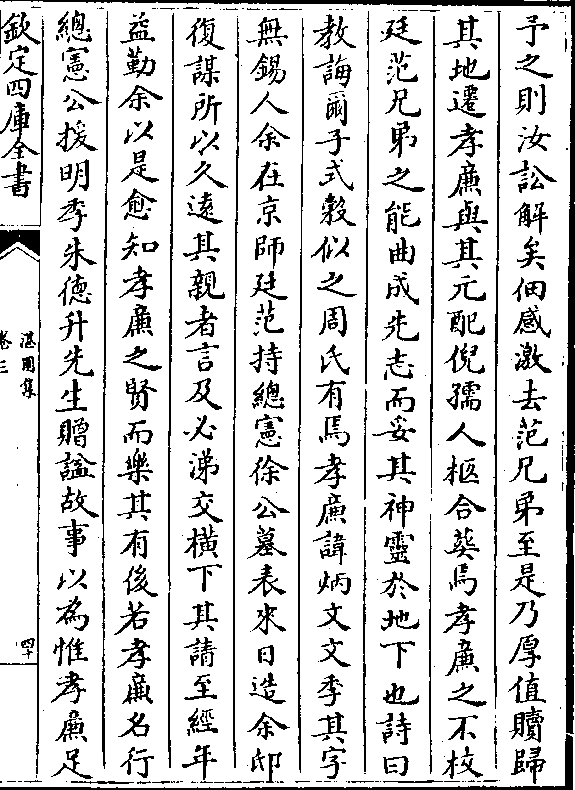 予之則汝訟解矣佃感激去范兄弟至是乃厚值贖歸
其地遷孝廉與其元配倪孺人柩合葬焉孝廉之不校
廷范兄弟之能曲成先志而妥其神靈於地下也詩曰
教誨爾子式榖似之周氏有焉孝廉諱炳文文季其字
無錫人余在京師廷范持總憲徐公墓表來日造余邸
復謀所以久遠其親者言及必涕交橫下其請至經年
益勤余以是愈知孝廉之賢而樂其有後若孝廉名行
總憲公援明季朱德升先生贈諡故事以為惟孝廉足
欽定四庫全書
湛園集
卷三
四十